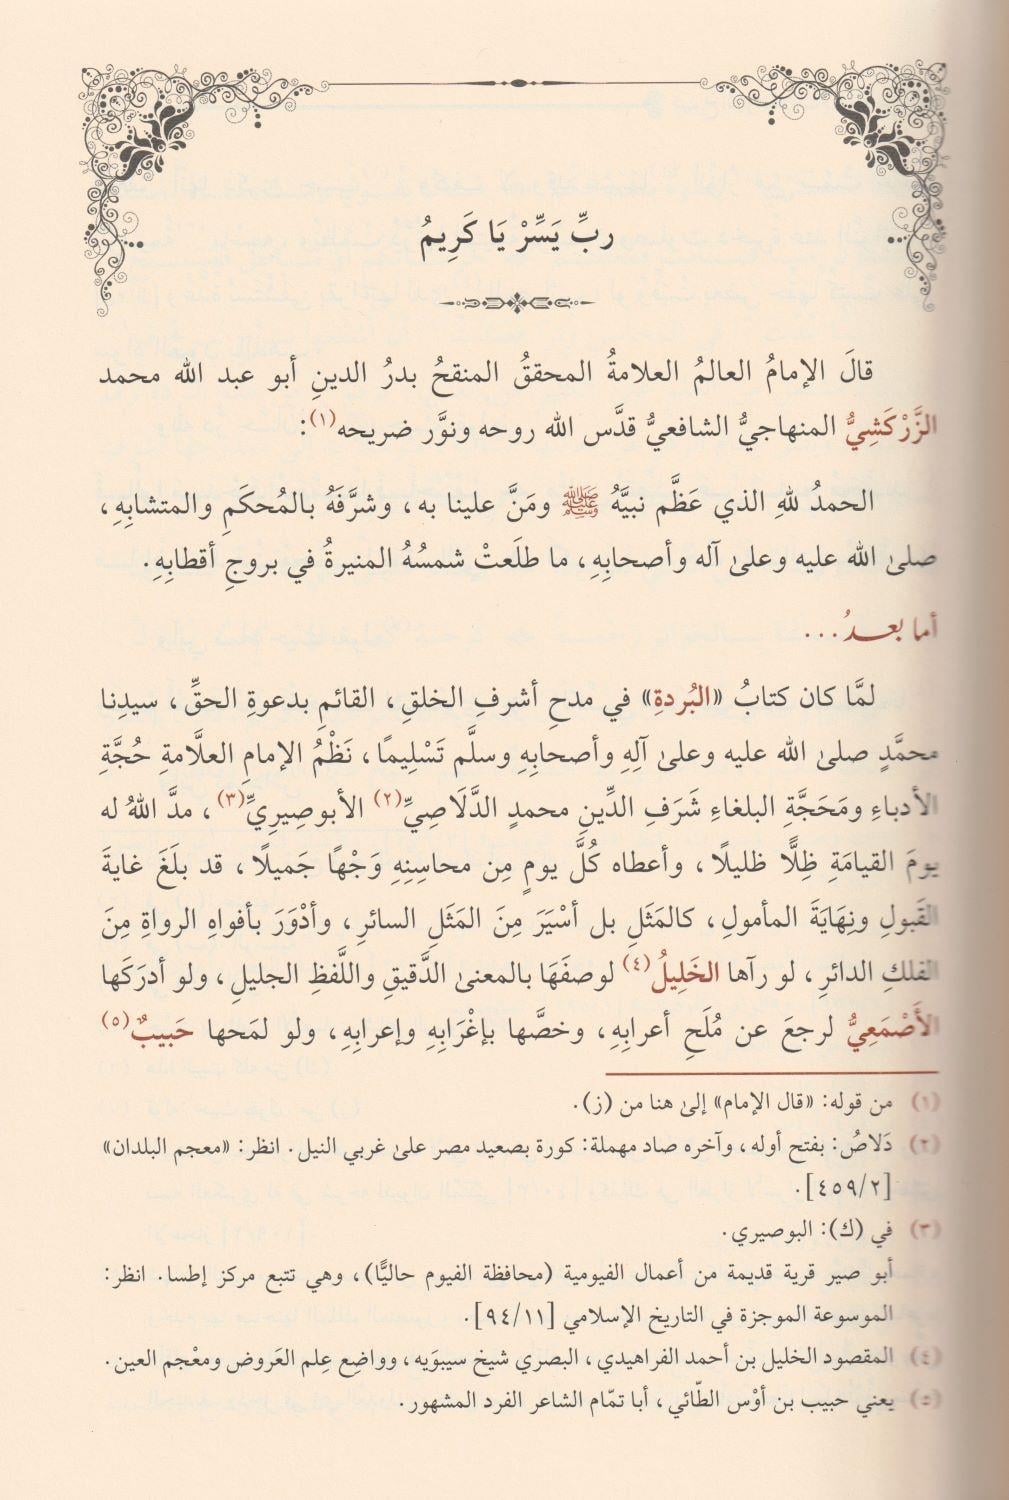 ربِّ يَسِّرْ يَا كَرِيمُ
قالَ الإمامُ العالمُ العلامةُ المحققُ المنقحُ بدرُ الدينِ أبو عبد الله محمد
الزَّرْكَشِيُّ المنهاجيُّ الشافعيُّ قدَّس الله روحه ونوَّر ضريحه(١):
الحمدُ للهِ الذي عَظَّم نبيَّهُ ﷺ ومَنَّ علينا به، وشرَّفَهُ بالمُحكَمِ والمتشابِهِ،
صلىٰ الله عليه وعلىٰ آله وأصحابِهِ، ما طلَعتْ شمسُهُ المنيرةُ في بروجِ أقطابِهِ.
أما بعدُ...
لمَّا كان كتابُ «البُردةِ» في مدحِ أشرفِ الخلقِ، القائمِ بدعوةِ الحقِّ، سيدِنا
محمَّدٍ صلىٰ الله عليه وعلىٰ آلِهِ وأصحابِهِ وسلَّم تَسْلِيمًا، نَظْمُ الإمامِ العلَّامةِ حُجَّةِ
الأدباءِ ومَحَجَّةِ البلغاءِ شَرَفِ الدِّينِ محمدٍ الدَّلَاصِيِّ(٢) الأبوصِيرِيِّ(٣)، مدَّ اللهُ له
يومَ القيامَةِ ظِلًّا ظليلًا، وأعطاه كُلَّ يومٍ مِن محاسِنِهِ وَجْهًا جَميلًا، قد بلَغَ غايةَ
القَبولِ ونِهَايَةَ المأمولِ، كالمثَلِ بل أسْيَرَ مِنَ المَثَلِ السائرِ، وأدْوَرَ بأفواهِ الرواةِ مِنَ
الفلكِ الدائرِ، لو رآها الخَلِيلُ(٤) لوصفَهَا بالمعنىٰ الدَّقيقِ واللَّفظِ الجليلِ، ولو أدرَكَها
الأَصْمَعِيُّ لرجعَ عن مُلَحِ أعرابِهِ، وخصَّها بإغْرَابِهِ وإعرابِهِ، ولو لمَحها حَبيبٌ(٥)
(١) من قوله: «قال الإمام» إلىٰ هنا من (ز).
(٢) دَلاصُ: بفتح أوله، وآخره صاد مهملة: كورة بصعيد مصر علىٰ غربي النيل. انظر: «معجم البلدان»
[٤٥٩/٢].
(٣) في (ك): البوصيري.
أبو صير قرية قديمة من أعمال الفيومية (محافظة الفيوم حاليًّا)، وهي تتبع مركز إطسا. انظر:
الموسوعة الموجزة في التاريخ الإسلامي [٩٤/١١].
(٤) المقصود الخليل بن أحمد الفراهيدي، البصري شيخ سيبوَيه، وواضِع عِلم العَروض ومعْجم العين.
(٥) يعني حبيب بن أوْس الطّائي، أبا تمّام الشاعر الفرد المشهور.